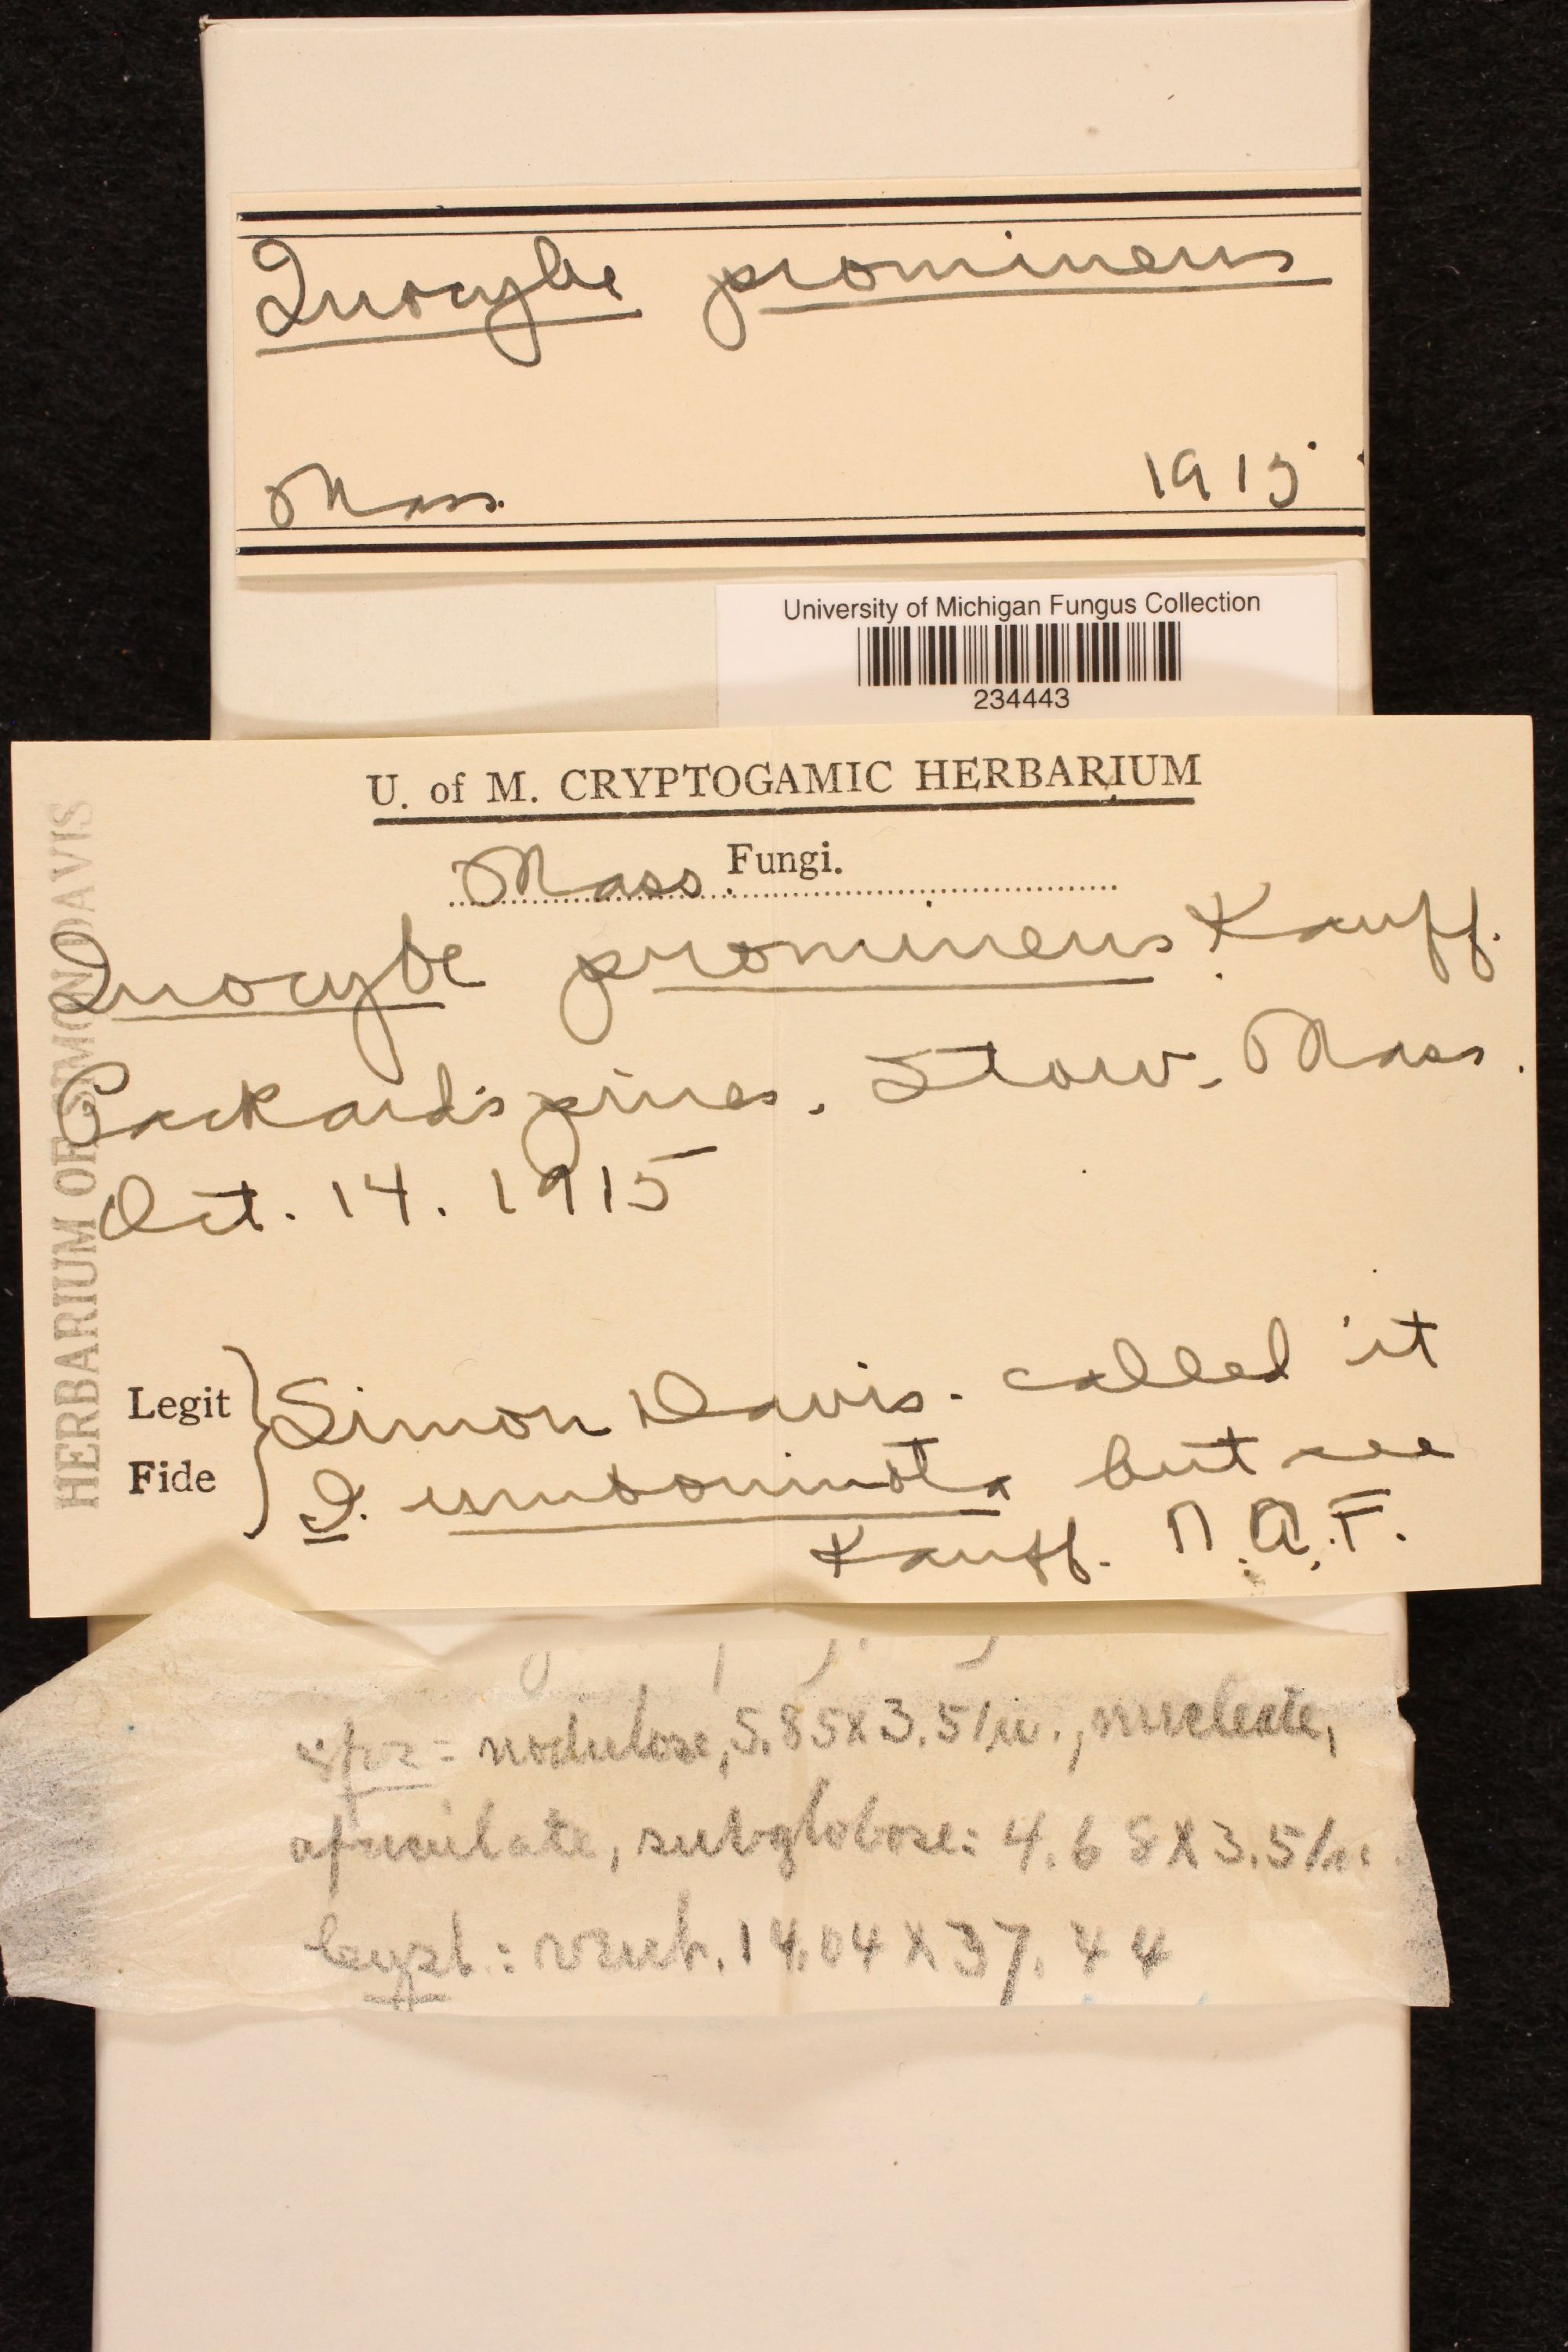 Inocybe prominens
Mass. 1915
University of Michigan Fungus Collection
234443
U. of M. CRYPTOGAMIC HERBARIUM
Mass. Fungi.
Inocybe prominens Kauff.
Packard's pines. Stow. Mass.
Oct. 14. 1915
Legit Simon Davis. called it
Fide I. umboninota but see
Kauff. N.A.F.
HERBARIUM OF SIMON DAVIS
nodulose, 5.85X3.5/u., nucleate,
apiculate, subglobose: 4.68X3.5/u.
vent. 14.04X37.44